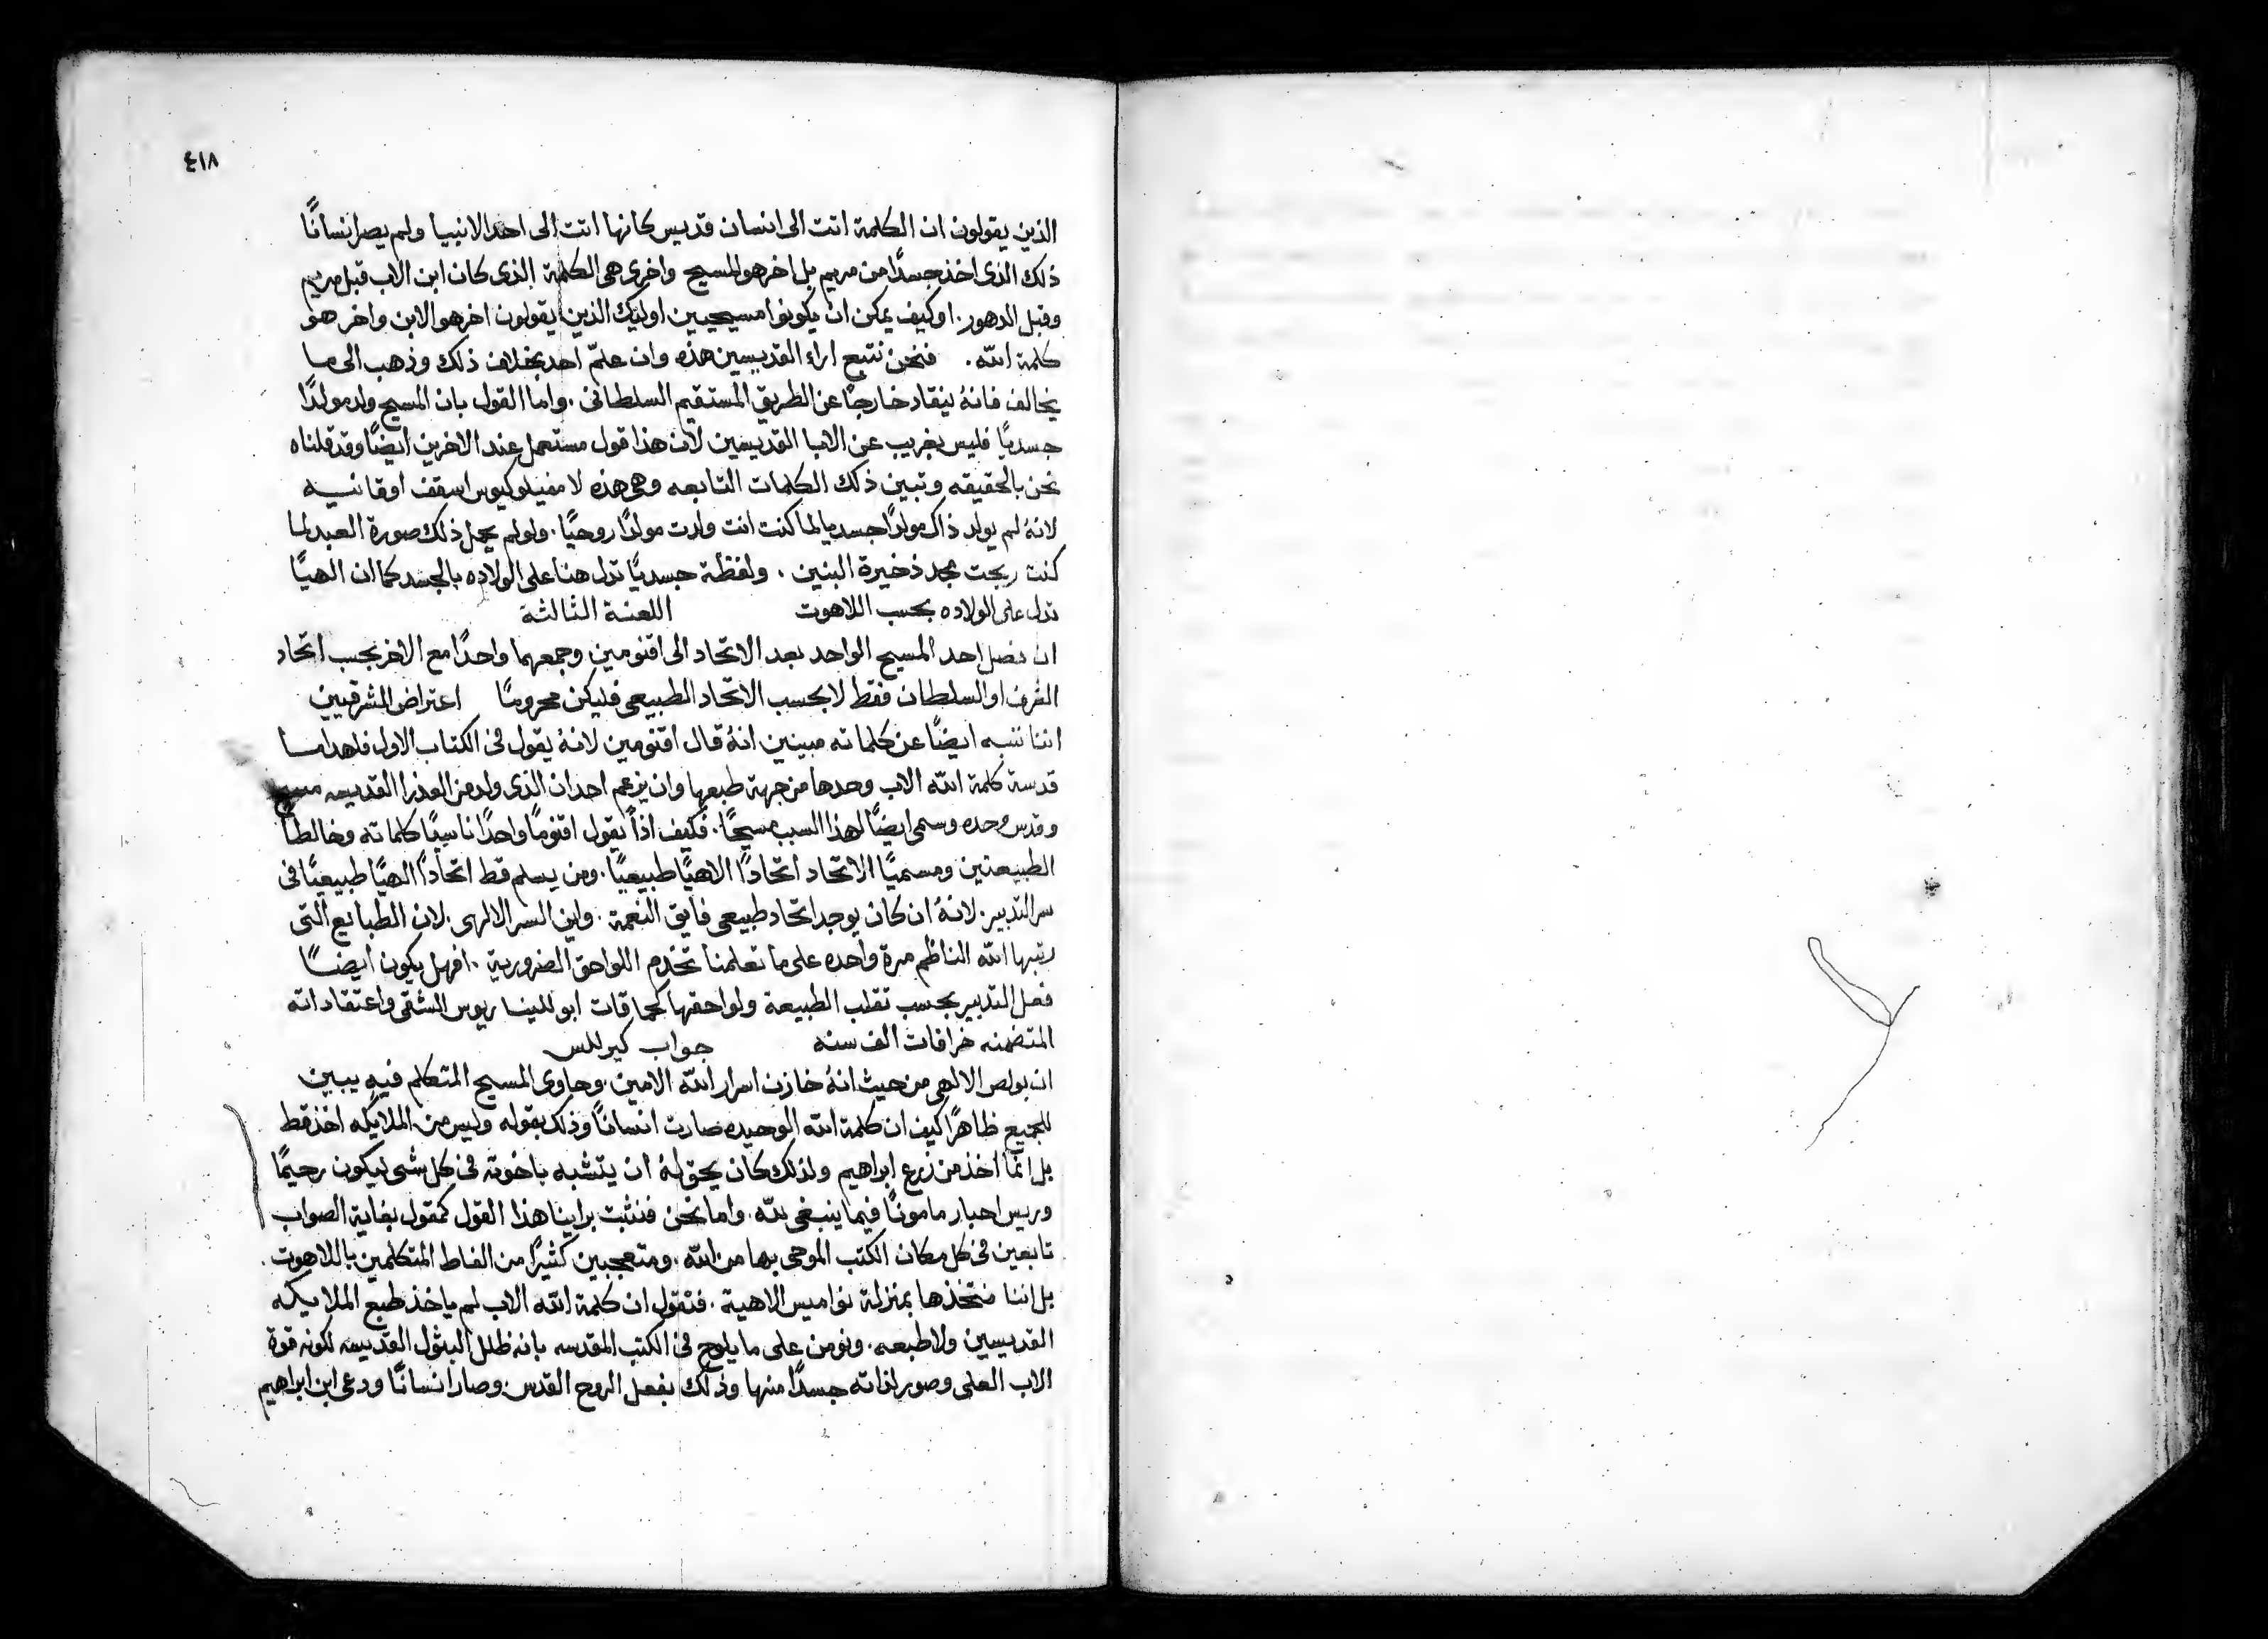 ٤١٨
الذين يقولون ان الكلمة اتت الى انسان قديس كانها اتت الى احد الانبيا ولم يصر انسانًا
ذلك الذى اخذ جسدًا من مريم بل اخر هو المسيح واخرى هى الكلمة الذى كان ابن الاب قبل مريم
وقبل الدهور. اوكيف يمكن ان يكونوا مسيحيين اوليك الذين يقولون اخر هو الابن واخر هو
كلمة الله. فنحن نتبع اراء القديسين هذه وان علمّ احد بخلاف ذلك وذهب الى ما
يخالف فانهُ ينقاد خارجًا عن الطريق المستقيم السلطانى. واما القول بان المسيح ولد مولدًا
جسديًا فليس بغريب عن الابا القديسين لان هذا قول مستعمل عند الاخرين ايضًا وقد قلناه
نحن بالحقيقه وتبين ذلك الكلمات التابعه وهى هذه لامفيلوكيوس اسقف اوقانيه
لانهُ لم يولد ذاك مولدًا جسديا لما كنت انت ولدت مولدًا روحيًا. ولو لم يحمل ذلك صورة العبد لما
كنت ربحت مجد ذخيرة البنين. ولفظة جسديًا تدل هنا على الولاده بالجسد كما ان الهيًا
تدل على الولاده بحسب اللاهوت اللعنة الثالثة
ان فصل احد المسيح الواحد بعد الاتحاد الى اقنومين وجمعهما واحدًا مع الاخر بحسب اتحاد
الشرف او السلطان فقط لا بحسب الاتحاد الطبيعى فليكن محرومًا اعتراض المشرقيين
اننا ننبه ايضًا عن كلماته مبينين انهُ قال اقنومين لانهُ يقول فى الكتاب الاول
قدسة كلمة الله الاب وحدها من جهة طبعها وان يزعم احد ان الذى ولد من العذرا القديسه مسح
وقدس وحده وسمى ايضًا لهذا السبب مسيحًا. فكيف اذًا يقول اقنومًا واحدًا ناسيًا كلماته وخالطًا
الطبيعتين ومسميًا الاتحاد اتحادًا الاهيًا طبيعيًا. ومن يسلم قط اتحادًا الهيًا طبيعيًا فى
سر التدبير. لانهُ ان كان يوجد اتحاد طبيعى فاين النعمة. واين السر الالهى. لان الطبايع التى
رتبها الله الناظم مرة واحده على ما تعلمنا تخدم اللواحق الضرورية. افهل يكون ايضًا
فعل التدبير بحسب تقلب الطبيعة ولواحقها كحماقات ابوللينا ريوس الشقى واعتقاداته
المتضمنه خرافات الف سنه جواب كيرللس
ان بولص الالهى من حيث انهُ خازن اسرار الله الامين. وحاوى المسيح المتكلم فيه يبين
للجميع ظاهرًا كيف ان كلمة الله الوحيده صارت انسانًا وذلك بقوله وليس من الملايكه اخذ قط
بل انمّا اخذ من زرع ابراهيم ولذلك كان يحق لهُ ان يتشبه باخوته فى كل شى ليكون رحيمًا
وريس احبار مامونًا فيما ينبغى لله. واما نحن فنثبت براينا هذا القول كمقول بغاية الصواب
تابعين فى كل مكان الكتب الموحى بها من الله. ومتعجبين كثيرًا من الفاظ المتكلمين باللاهوت.
بل اننا نتخذها بمنزلة نواميس الاهية. فنقول ان كلمة الله الاب لم ياخذ طبع الملايكه
القديسين ولا طبعه. ونومن على ما يلوح فى الكتب المقدسه بانه ظلل البتول القديسه لكونه قوة
الاب العلى وصور لذاته جسدًا منها وذلك بفعل الروح القدس. وصار انسانًا ودعى ابن ابراهيم